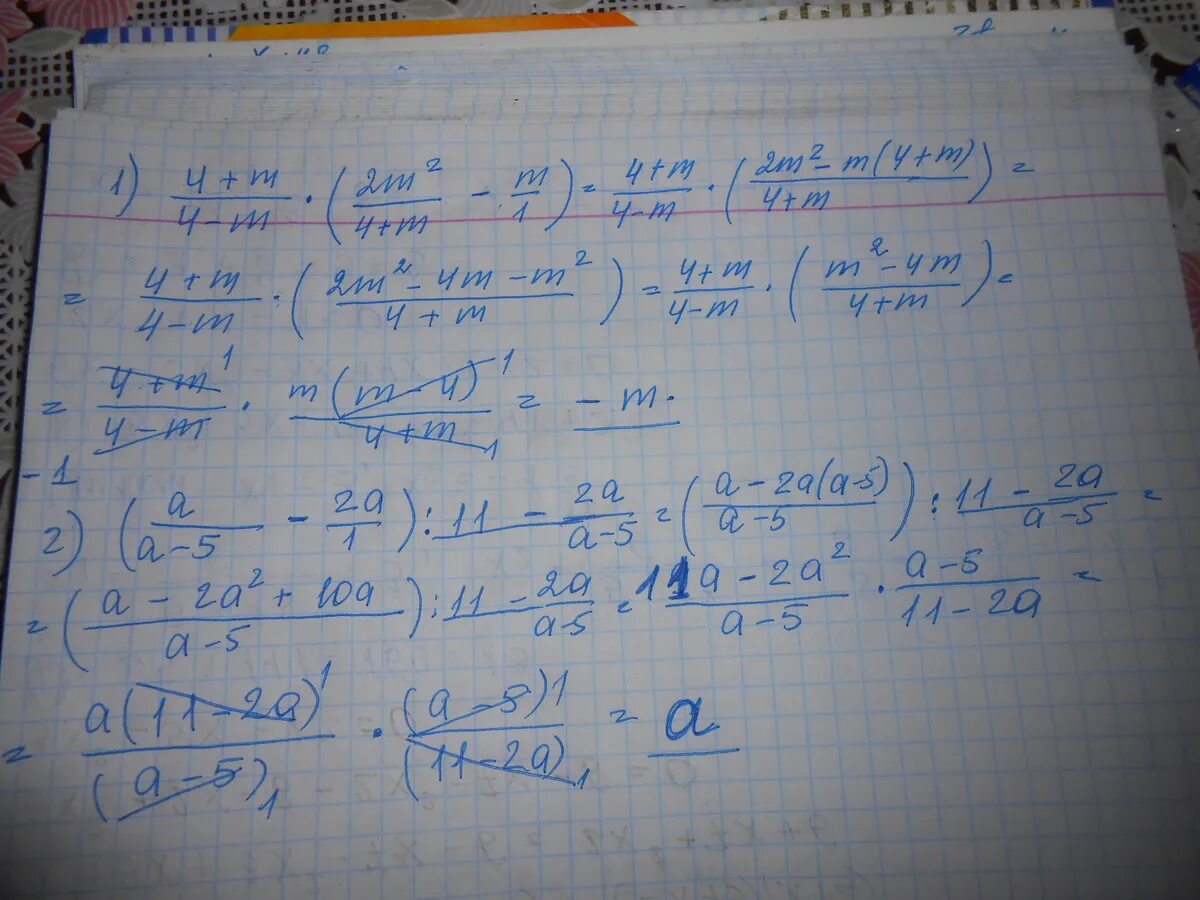 1) (4+m)/(4-m) · (2m²/(4+m) - m/1) = (4+m)/(4-m) · ((2m² - m(4+m))/(4+m)) =
= (4+m)/(4-m) · ((2m² - 4m - m²)/(4+m)) = (4+m)/(4-m) · ((m² - 4m)/(4+m)) =
= (4+m)¹/(4-m) · m(m-4)¹/(4+m)₁ = -m.
-1
2) (a/(a-5) - 2a/1) : (11 - 2a)/(a-5) = ((a - 2a(a-5))/(a-5)) : (11 - 2a)/(a-5) =
= ((a - 2a² + 10a)/(a-5)) : (11 - 2a)/(a-5) = (11a - 2a²)/(a-5) · (a-5)/(11-2a) =
= a(11-2a)¹/(a-5)₁ · (a-5)¹/(11-2a)₁ = a